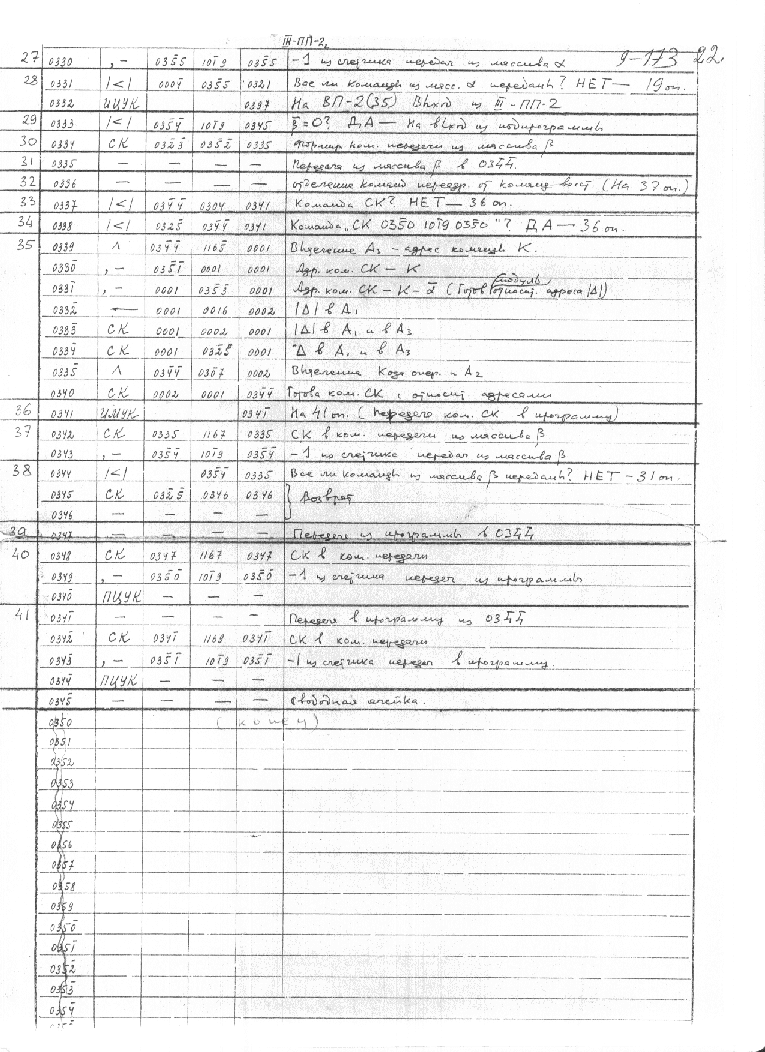 III-ПП-2.
9-173 22.
27 0330 ,– 0355̄ 101̄9 0355̄ –1 из счетчика передач из массива α
28 0331 |<| 0007 0355̄ 0321 Все ли команды из масс. α переданы? НЕТ — 19 оп.
0332 ИЦУК 0397 На ВП-2(35) Выход из III-ПП-2
29 0333 |<| 0354̄ 101̄9 0345̄ β̄=0? ДА — На выход из подпрограммы
30 0334 СК 0323̄ 0352̄ 0335 Формир. ком. передачи из массива β
31 0335 — — — — Передача из массива β в 034̄4̄.
32 0336 — — — — отделение команд передр. от команд вост (На 37 оп.)
33 0337 |<| 034̄4̄ 0304 0341 Команда СК? НЕТ — 36 оп.
34 0338 |<| 0325̄ 034̄4̄ 0341 Команда „СК 035̄0̄ 101̄9 035̄0̄"? ДА — 36 оп.
35 0339 Λ 034̄4̄ 1165̄ 0001 Выделение А₃ – адрес команды К.
033̄0̄ ,– 035̄1̄ 0001 0001 Адр. ком. СК – К
0331̄ ,– 0001 0353̄ 0001 Адр. ком. СК – К – ᾱ (Готов модуль относит. адреса |Δ|)
0332̄ 0001 0016 0002 |Δ| в А₁
0333̄ СК 0001 0002 0001 |Δ| в А₁ и в А₃
0334̄ СК 0001 0325̄ 0001 Δ в А₁ и в А₃
0335̄ Λ 034̄4̄ 0307 0002 Выделение Кода опер. и А₂
0340 СК 0002 0001 034̄4̄ Готова ком. СК с относит. адресами
36 0341 ИЦУК 0341̄ На 41 оп. (Передача ком. СК в программу)
37 0342 СК 0335 1167 0335 СК в ком. передачи из массива β
0343 ,– 0354̄ 101̄9 0354̄ –1 из счетчика передач из массива β
38 0344 |<| 0354̄ 0335 Все ли команды из массива β переданы? НЕТ – 31 оп.
0345 СК 0325̄ 0346 0346 Возврат
0346 — — — —
39 0347 — — — — Передача из программы в 034̄4̄
40 0348 СК 0347 1167 0347 СК в ком. передачи
0349 ,– 0350̄ 101̄9 0350̄ –1 из счетчика передач из программы
0340̄ ПЦУК — — —
41 0341̄ — — — Передача в программу из 034̄4̄
0342̄ СК 0341̄ 1168 0341̄ СК в ком. передачи
0343̄ ,– 0351̄ 101̄9 0351̄ –1 из счетчика передач в программу.
0344̄ ПЦУК — — —
0345̄ — — — — Свободная ячейка.
0350 (конец)
0351
0352
0353
0354
0355
0356
0357
0358
0359
0350̄
0351̄
0352̄
0353̄
0354̄